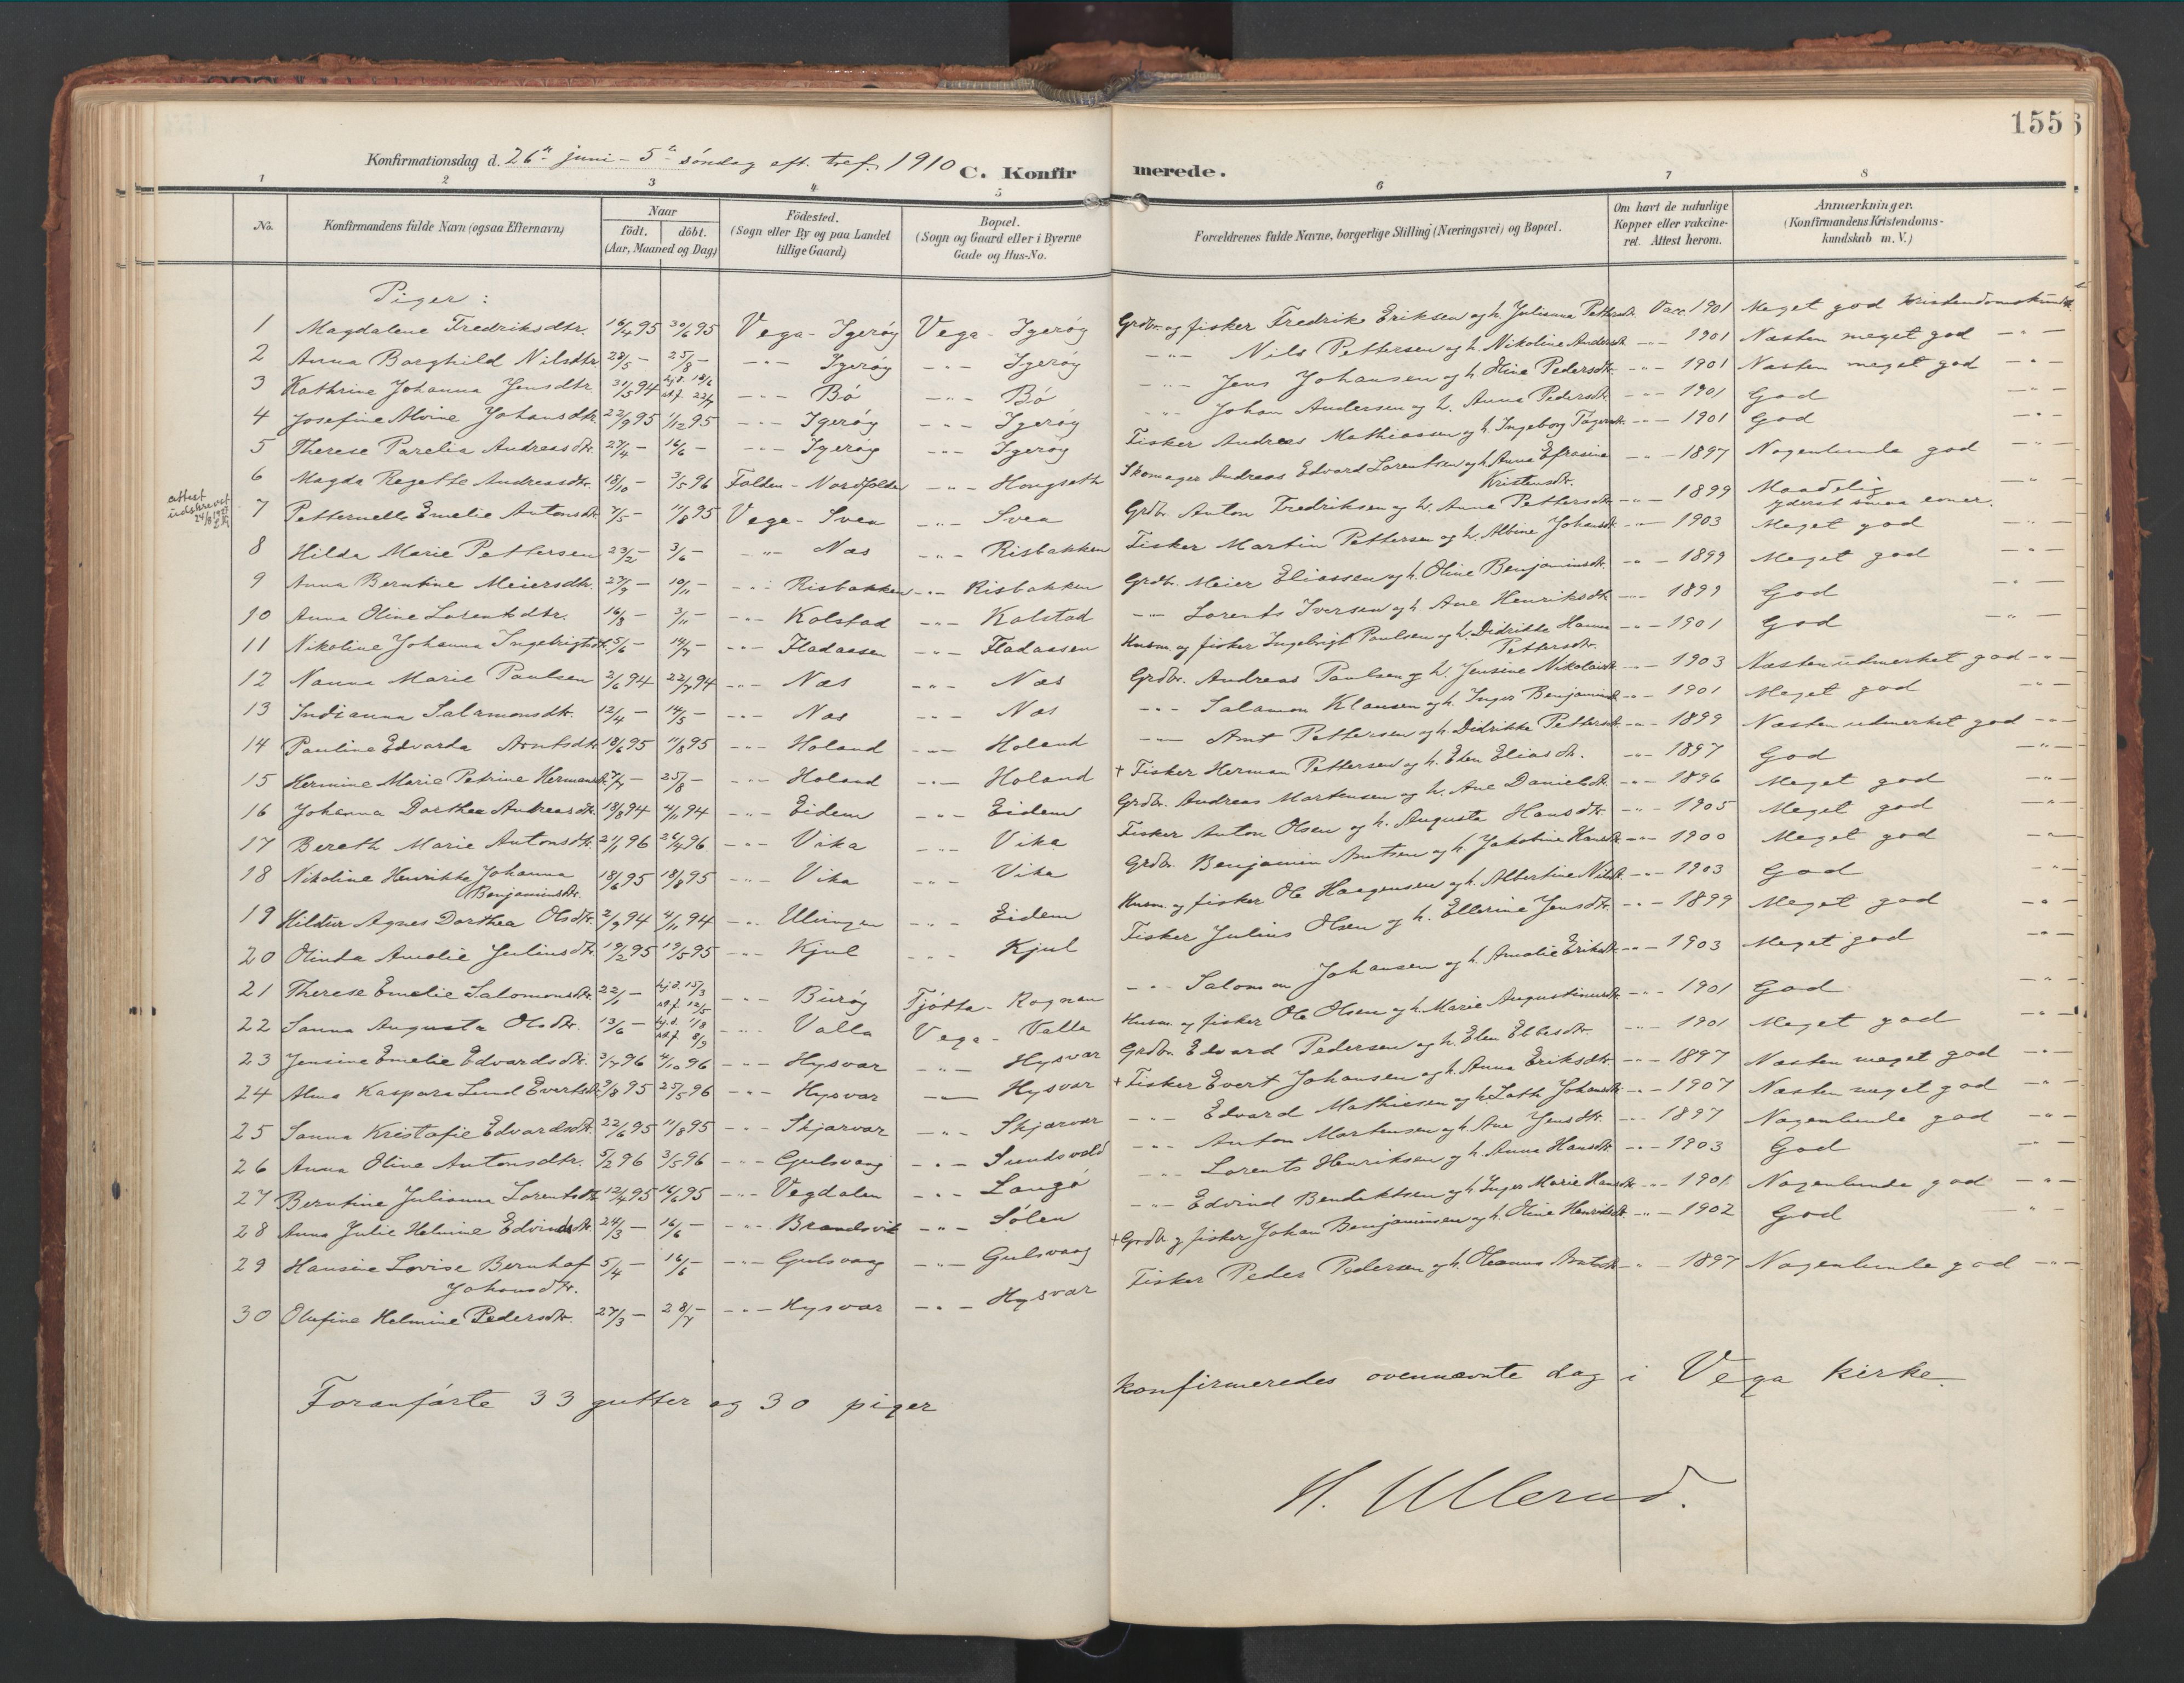 155
Konfirmationsdag d. 26de juni - 5te søndag eft. tref. 1910 C. Konfirmerede.
1 2 3 4 5 6 7 8
No. Konfirmandens fulde Navn (ogsaa Efternavn) Naar födt. döbt. (Aar, Maaned og Dag) Födested. (Sogn eller By og paa Landet tillige Gaard) Bopæl. (Sogn og Gaard eller i Byerne Gade og Hus-No. Forældrenes fulde Navne, borgerlige Stilling (Næringsvei) og Bopæl. Om havt de naturlige Kopper eller vakcineret. Attest herom. Anmærkninger. (Konfirmandens Kristendomskundskab m. V.)
Piger:
1 Magdalene Fredriksdtr. 16/4 95 30/6 95 Vega - Igerøy Vega - Igerøy Grdbr. og fisker Fredrik Eriksen og h. Julianna Pettersdtr. Vacc. 1901 Meget god kristendomskundsk.
2 Anna Borghild Nilsdtr. 28/5 - 25/8 - -"- Igerøy -"- Igerøy -"- Nils Pettersen og h. Nikoline Andersdtr. -"- 1901 Næsten meget god -"-
3 Kathrine Johanna Jensdtr. 31/5 94 hj.d. 18/6 st.f. 22/7 -"- Bø -"- Bø -"- Jens Johansen og h. Oline Pedersdtr. -"- 1901 Næsten meget god -"-
4 Josefine Alvine Johansdtr. 22/9 95 1/12 95 -"- Igerøy -"- Igerøy -"- Johan Andersen og h. Anna Pedersdtr. -"- 1901 God -"-
5 Therese Parelia Andreasdtr. 27/4 - 16/6 - -"- Igerøy -"- Igerøy Fisker Andreas Mathiassen og h. Ingeborg -"- 1901 God -"-
6 Magda Regette Andreasdtr. 18/10 - 3/5 96 Folden - Nordfolden -"- Hongseth Skomager Andreas Edvard Lorentsen og h. Anna Efrasine Kristensdtr. -"- 1897 Nogenlunde god -"-
attest udskrevet
7 Petternelle Emelie Antonsdtr. 7/5 - 11/8 95 Vega - Svea -"- Svea Grdbr. Anton Fredriksen og h. Anna Pettersdtr. -"- 1899 Maadelig -"- yderst smaa evner.
8 Hilda Marie Pettersen 23/2 - 3/6 - -"- Næs -"- Risbakken Fisker Martin Pettersen og h. Albine Johansdtr. -"- 1903 Meget god -"-
9 Anna Berntine Meiersdtr. 27/9 - 10/11 - -"- Risbakken -"- Risbakken Grdbr. Meier Eliassen og h. Oline Benjaminsdtr. -"- 1899 Meget god -"-
10 Anna Oline Lorentsdtr. 16/8 - 3/11 - -"- Kolstad -"- Kolstad -"- Lorents Iversen og h. Ane Henriksdtr. -"- 1899 God -"-
11 Nikoline Johanna Ingebrigtsdtr. 5/6 - 14/7 - -"- Fladaasen -"- Fladaasen Husm. og fisker Ingebrigt Paulsen og h. Didrikke Hanna Pettersdtr. -"- 1901 God -"-
12 Nanna Marie Paulsen 2/6 94 22/7 94 -"- Næs -"- Næs Grdbr. Andreas Paulsen og h. Jensine Nikolaisdtr. -"- 1903 Næsten udmerket god -"-
13 Indianna Salamonsdtr. 12/4 - 14/5 - -"- Næs -"- Næs -"- Salamon Klausen og h. Inger Benjaminsdtr. -"- 1901 Meget god -"-
14 Pauline Edvarda Arntsdtr. 18/6 95 11/8 95 -"- Holand -"- Holand -"- Arnt Pettersen og h. Didrikke Pettersdtr. -"- 1899 Næsten udmerket god -"-
15 Hermine Marie Petrine Hermansdtr. 7/7 - 25/8 - -"- Holand -"- Holand + Fisker Herman Pettersen og h. Elen Eliasdtr. -"- 1897 God -"-
16 Johanna Dorthea Andreasdtr. 18/8 94 4/11 94 -"- Eidem -"- Eidem Grdbr. Andreas Mortensen og h. Ane Danielsdtr. -"- 1896 Meget god -"-
17 Bereth Marie Antonsdtr. 21/1 96 26/4 96 -"- Vika -"- Vika Fisker Anton Olsen og h. Augusta Hansdtr. -"- 1905 Meget god -"-
18 Nikoline Henrikke Johanna Benjaminsdtr. 18/6 95 18/8 95 -"- Vika -"- Vika Grdbr. Benjamin Arntsen og h. Jakobine Hansdtr. -"- 1900 Meget god -"-
19 Hildur Agnes Dorthea Olsdtr. 2/9 94 4/11 94 -"- Ulingen -"- Eidem Husm. og fisker Ole Haagensen og h. Albertine Nilsdtr. -"- 1903 God -"-
20 Olinda Amalie Juliusdtr. 19/2 95 19/5 95 -"- Kjul -"- Kjul Fisker Julius Olsen og h. Ellerine Jensdtr. -"- 1899 Meget god -"-
21 Therese Emelie Salomonsdtr. 22/1 - hj.d. 15/3 st.f. 12/5 -"- Burøy Tjøtta - Rognan -"- Salomon Johansen og h. Amalie Eriksdtr. -"- 1903 Meget god -"-
22 Sanna Augusta Olsdtr. 13/6 - hj.d. 1/8 st.f. 8/9 -"- Valla Vega - Valla Husm. og fisker Ole Olsen og h. Marie Augustinusdtr. -"- 1901 God -"-
23 Jensine Emelie Edvardsdtr. 3/7 96 4/10 96 -"- Hysvær -"- Hysvær Grdbr. Edvard Pedersen og h. Elen Ellesdtr. -"- 1901 Meget god -"-
24 Alma Kaspara Lund Evertsdtr. 9/8 95 25/5 96 -"- Hysvær -"- Hysvær + Fisker Evert Johansen og h. Anna Eriksdtr. -"- 1897 Næsten meget god -"-
25 Sanna Kristofie Edvardsdtr. 22/6 95 11/8 95 -"- Skjærvær -"- Skjærvær -"- Edvard Mathiesen og h. Lath Johansdtr. -"- 1907 Næsten meget god -"-
26 Anna Oline Antonsdtr. 5/2 96 3/5 96 -"- Gulsvaag -"- Sundsvold -"- Anton Mortensen og h. Ane Jensdtr. -"- 1897 Nogenlunde god -"-
27 Berntine Julianna Lorentsdtr. 12/4 95 16/6 95 -"- Vegdalen -"- Langø -"- Lorents Henriksen og h. Anna Hansdtr. -"- 1903 God -"-
28 Anna Julie Helmine Edvindsdtr. 24/3 - 16/6 - -"- Brandsvik -"- Sølen -"- Edvind Bendiktsen og h. Inger Marie Hansdtr. -"- 1901 Nogenlunde god -"-
29 Hansine Lovise Bernhof Johansdtr. 5/4 - 16/6 - -"- Gulsvaag -"- Gulsvaag + Grdbr. og fisker Johan Benjaminsen og h. Oline Henriksdtr. -"- 1902 God "
30 Olufine Helmine Pedersdtr. 27/3 - 28/7 - -"- Hysvær -"- Hysvær Fisker Peder Pedersen og h. Oleanna Arntsdtr. -"- 1897 Nogenlunde god -"-
Foranførte 33 gutter og 30 piger konfirmeredes ovennævnte dag i Vega kirke.
H. Ullerud.